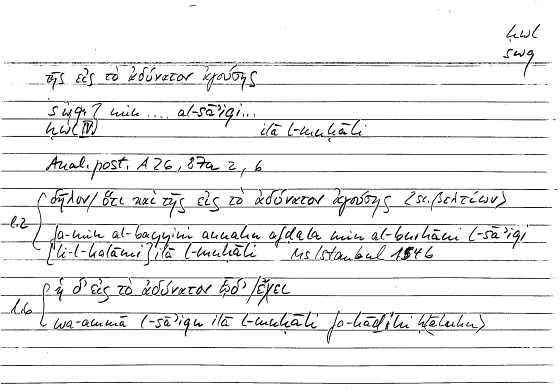 ḥwl
swq
τῆς εἰς τὸ ἀδύνατον ἀγούσης
min .... al-sāʾiqi...
ḥwl IV ilā l-muḥāli
Anal. post. A 26, 87a 2, 6
l.2 δῆλον / ὅτι καὶ τῆς εἰς τὸ ἀδύνατον ἀγούσης <sc. βελτίων>
fa-min al-bayyini annahu afḍalu min al-burhāni l-sāʾiqi
[li-l-kalāmi] ilā l-muḥāli Ms Istanbul 1546
l.6 ἡ δ' εἰς τὸ ἀδύνατον ὧδ' / ἔχει
wa-ammā l-sāʾiqu ilā l-muḥāli fa-hāḏihi ḥāluhu>